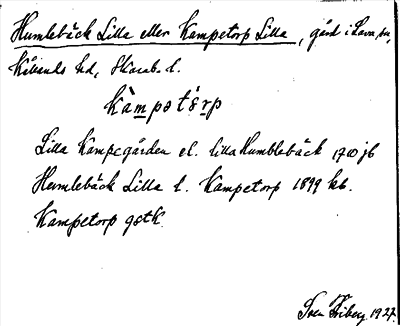 Humlebäck Lilla eller Kampetorp Lilla, gård i Lava sn,
Kållands hd, Skarab. l.
kàmpetó̀rp
Lilla Kampegården el. lilla Humblebäck 1700 jb
Humlebäck Lilla l. Kampetorp 1899 kb.
Kampetorp gstk
Sven Friberg 1927.